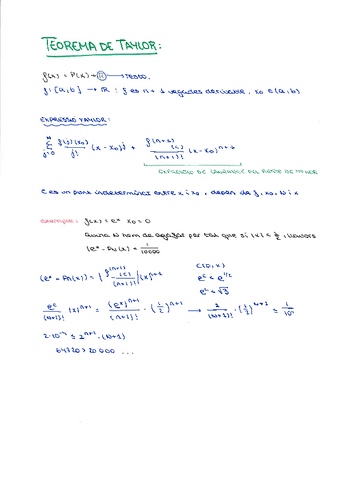 TEOREMA DE TAYLOR:
f(x) = P(x) + R → resto.
f: [a,b] → ℝ : f es n+1 vegades derivable, x₀ ∈ (a,b)
EXPRESSIÓ TAYLOR:
Σ_{j=0}^{N} f^{(j)}(x₀)/j! (x - x₀)^j + f^{(n+1)}(c)/(n+1)! (x - x₀)^{n+1}
EXPRESSIÓ DE LAGRANGE DEL RESTE DE TAYLOR
c es un punt indeterminat entre x i x₀, depen de f, x₀, N i x
exemple: f(x) = e^x x₀ = 0
Quina N hem de agafar per tal que si |x| ≤ 1/2, llavors
|e^x - P_N(x)| < 1/10000
|e^x - P_N(x)| = | f^{(n+1)}(c)/(n+1)! | |x|^{n+1}
c(0,x)
e^c ≤ e^{1/2}
e^c ≤ √3
e^c/(N+1)! |x|^{n+1} = (e^x)^{n+1}/(n+1)! · (1/2)^{n+1} → 2/(N+1)! · (1/2)^{n+1} ≤ 1/10^4
2·10^4 ≤ 2^{n+1} · (N+1)!
64720 > 20000 ...